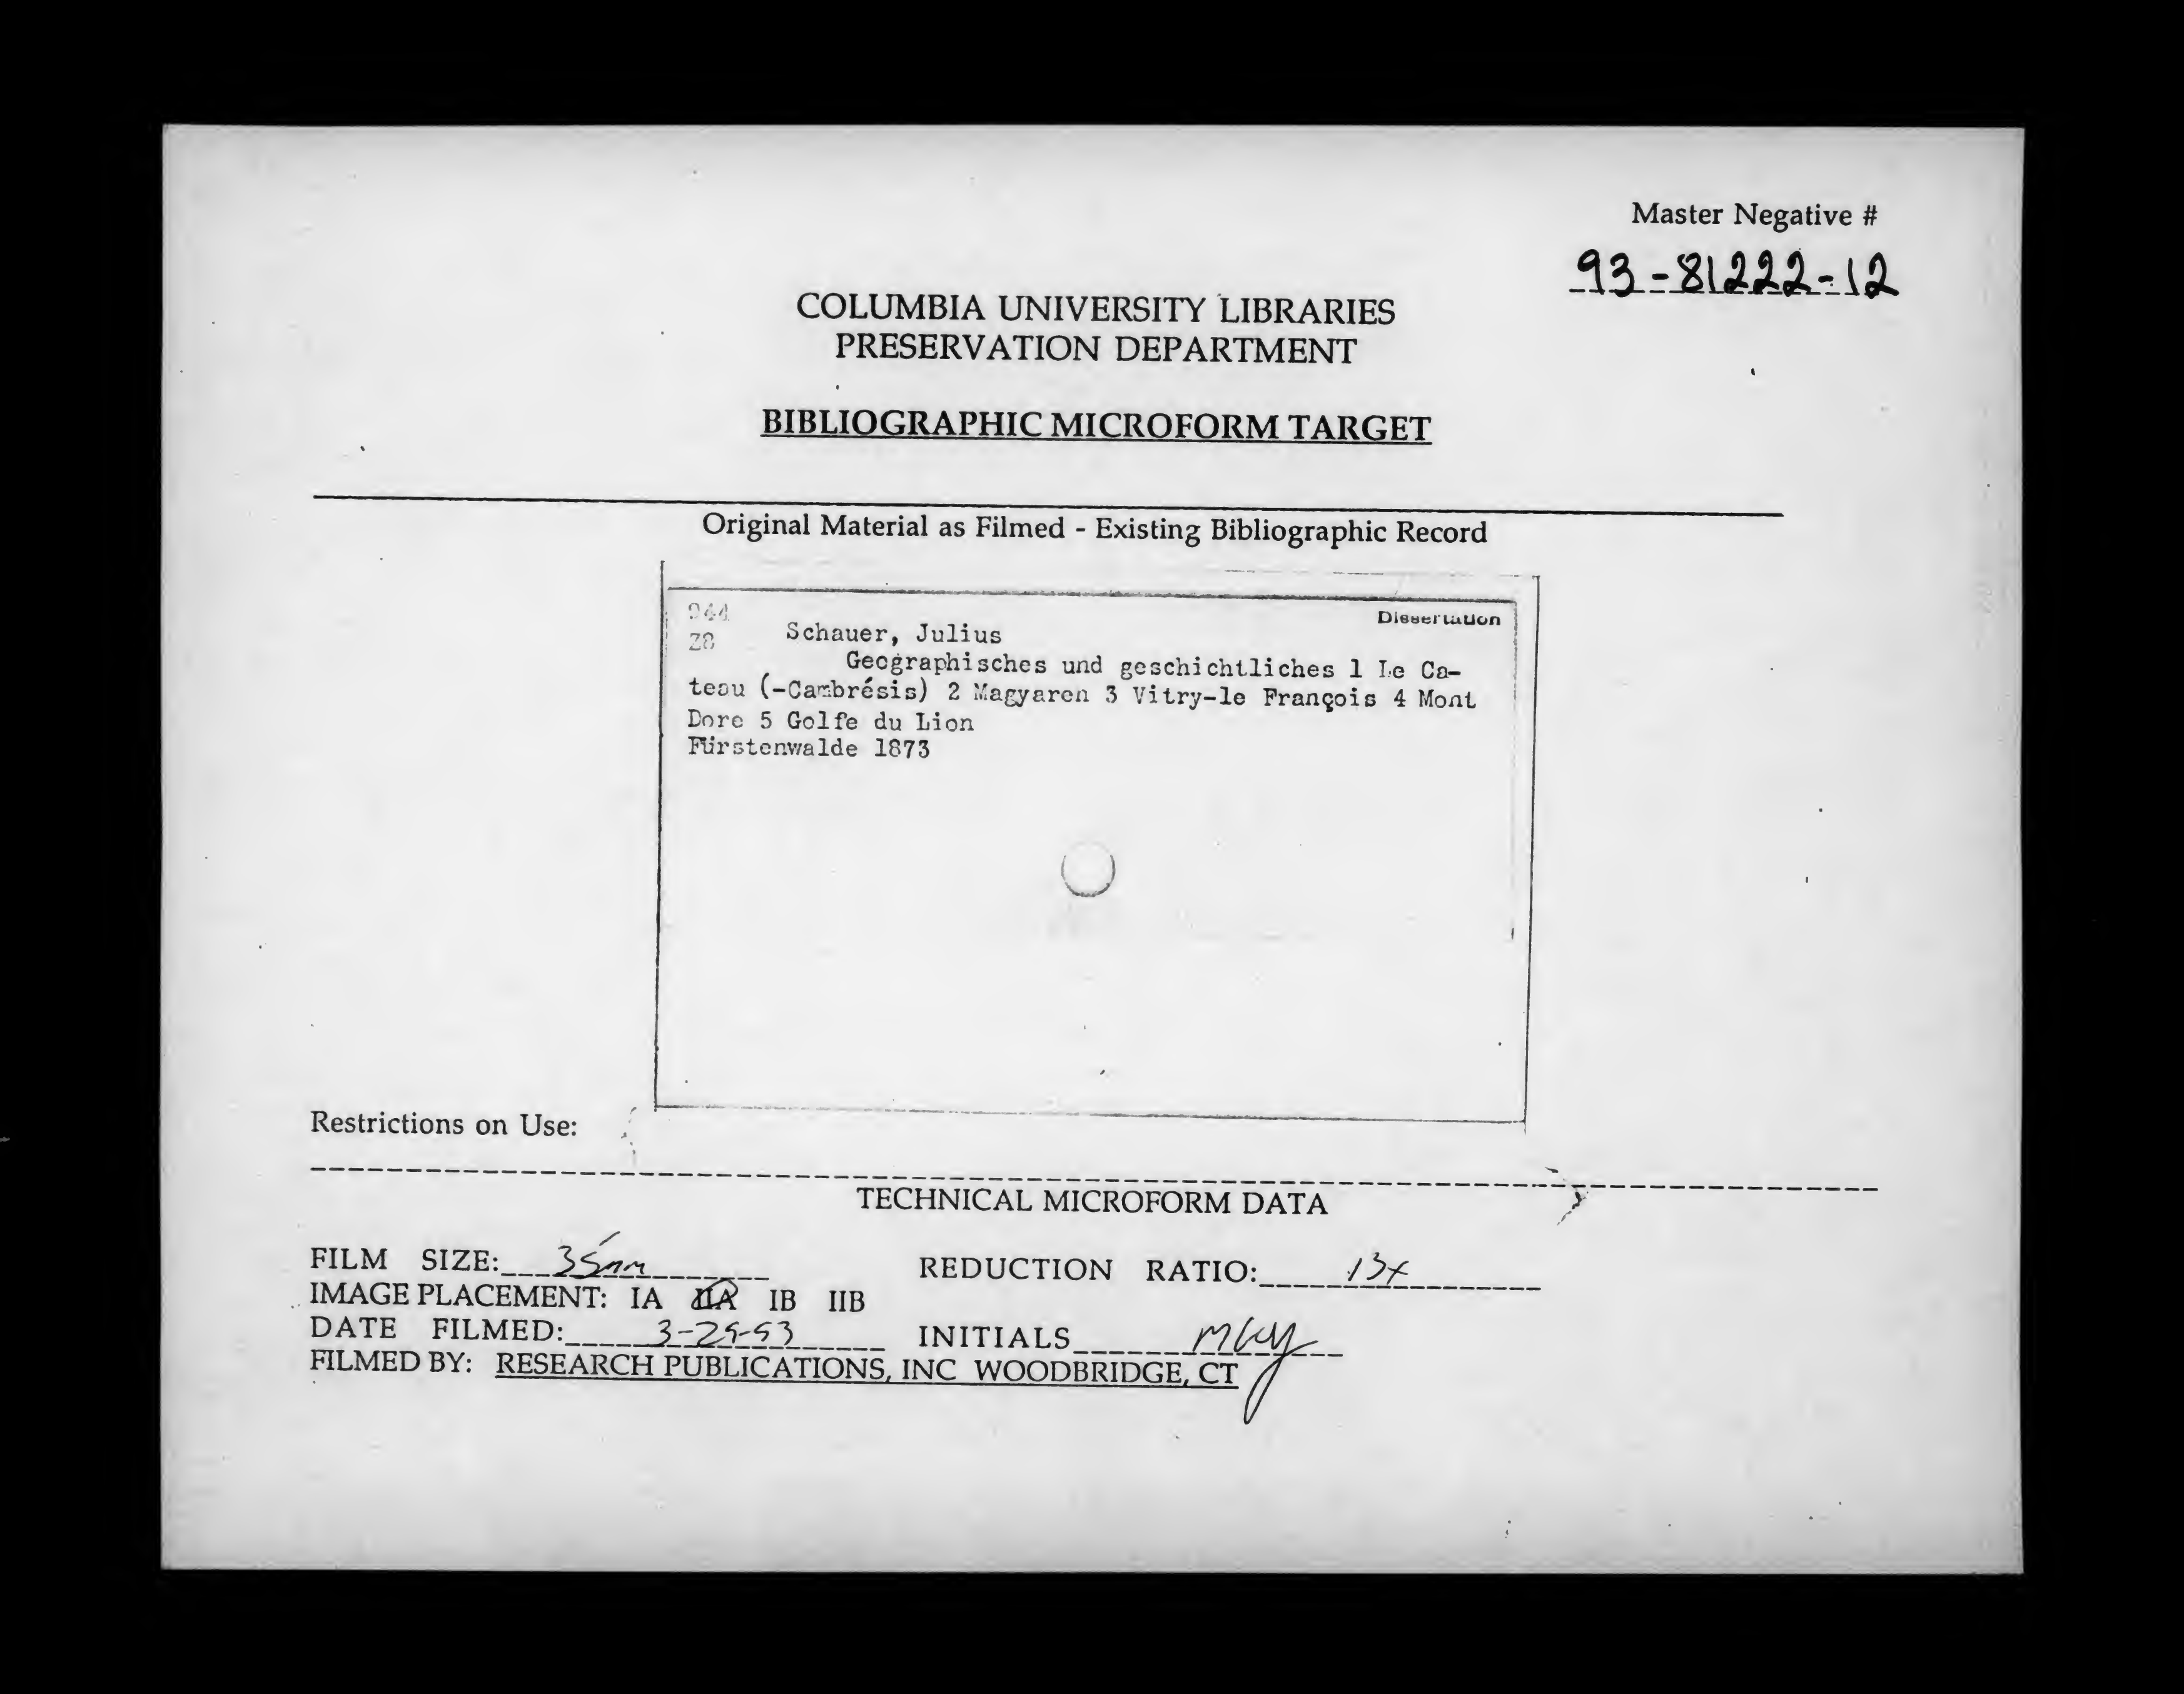 Master Negative #
93-81222-12
COLUMBIA UNIVERSITY LIBRARIES
PRESERVATION DEPARTMENT
BIBLIOGRAPHIC MICROFORM TARGET
Original Material as Filmed - Existing Bibliographic Record
944
Z8
Dissertation
Schauer, Julius
Geographisches und geschichtliches 1 Le Ca-
teau (-Cambrésis) 2 Magyaren 3 Vitry-le François 4 Mont
Dore 5 Golfe du Lion
Fürstenwalde 1873
Restrictions on Use:
TECHNICAL MICROFORM DATA
FILM SIZE: 35mm REDUCTION RATIO: 13x
IMAGE PLACEMENT: IA IIA IB IIB
DATE FILMED: INITIALS
FILMED BY: RESEARCH PUBLICATIONS, INC WOODBRIDGE, CT